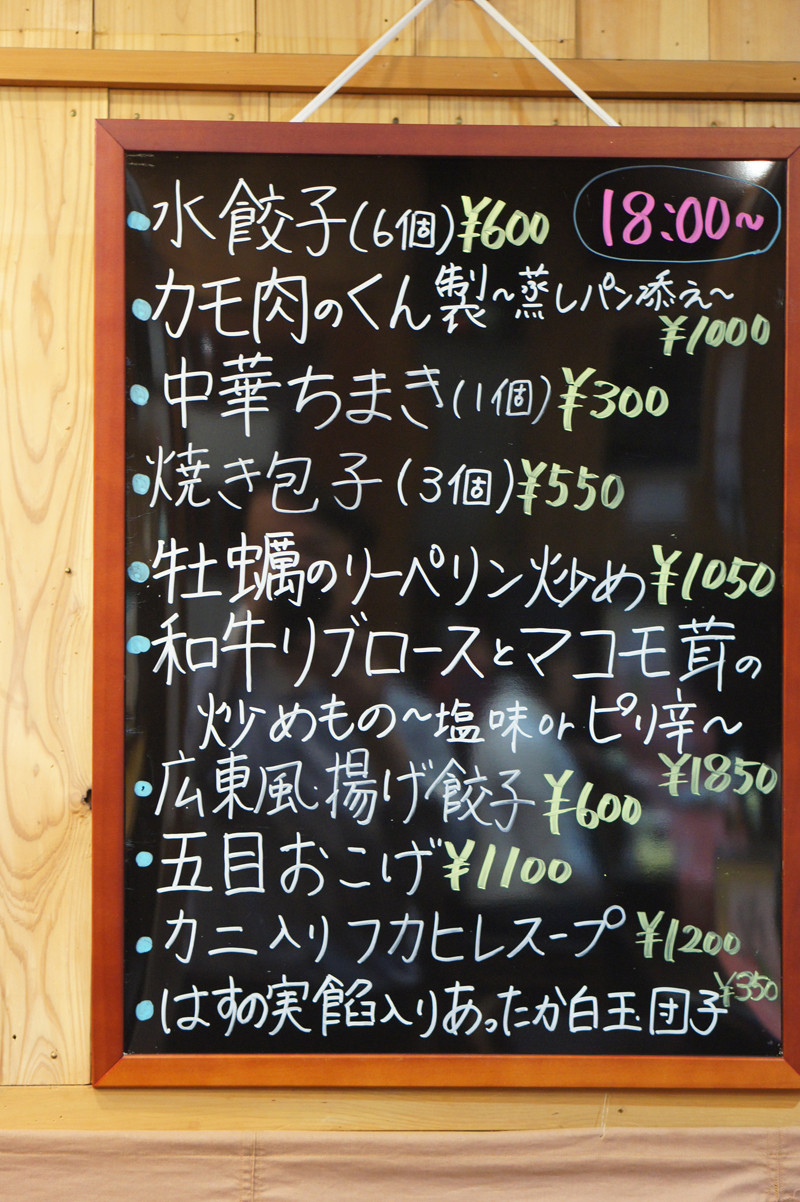 水餃子(6個)¥600 18:00~
カモ肉のくん製~蒸しパン添え~
¥1000
中華ちまき(1個)¥300
焼き包子(3個)¥550
牡蠣のリーペリン炒め¥1050
和牛リブロースとマコモ茸の
炒めもの~塩味orピリ辛~
¥1850
広東風揚げ餃子¥600
五目おこげ¥1100
カニ入りフカヒレスープ¥1200
はすの実餡入りあったか白玉団子¥350